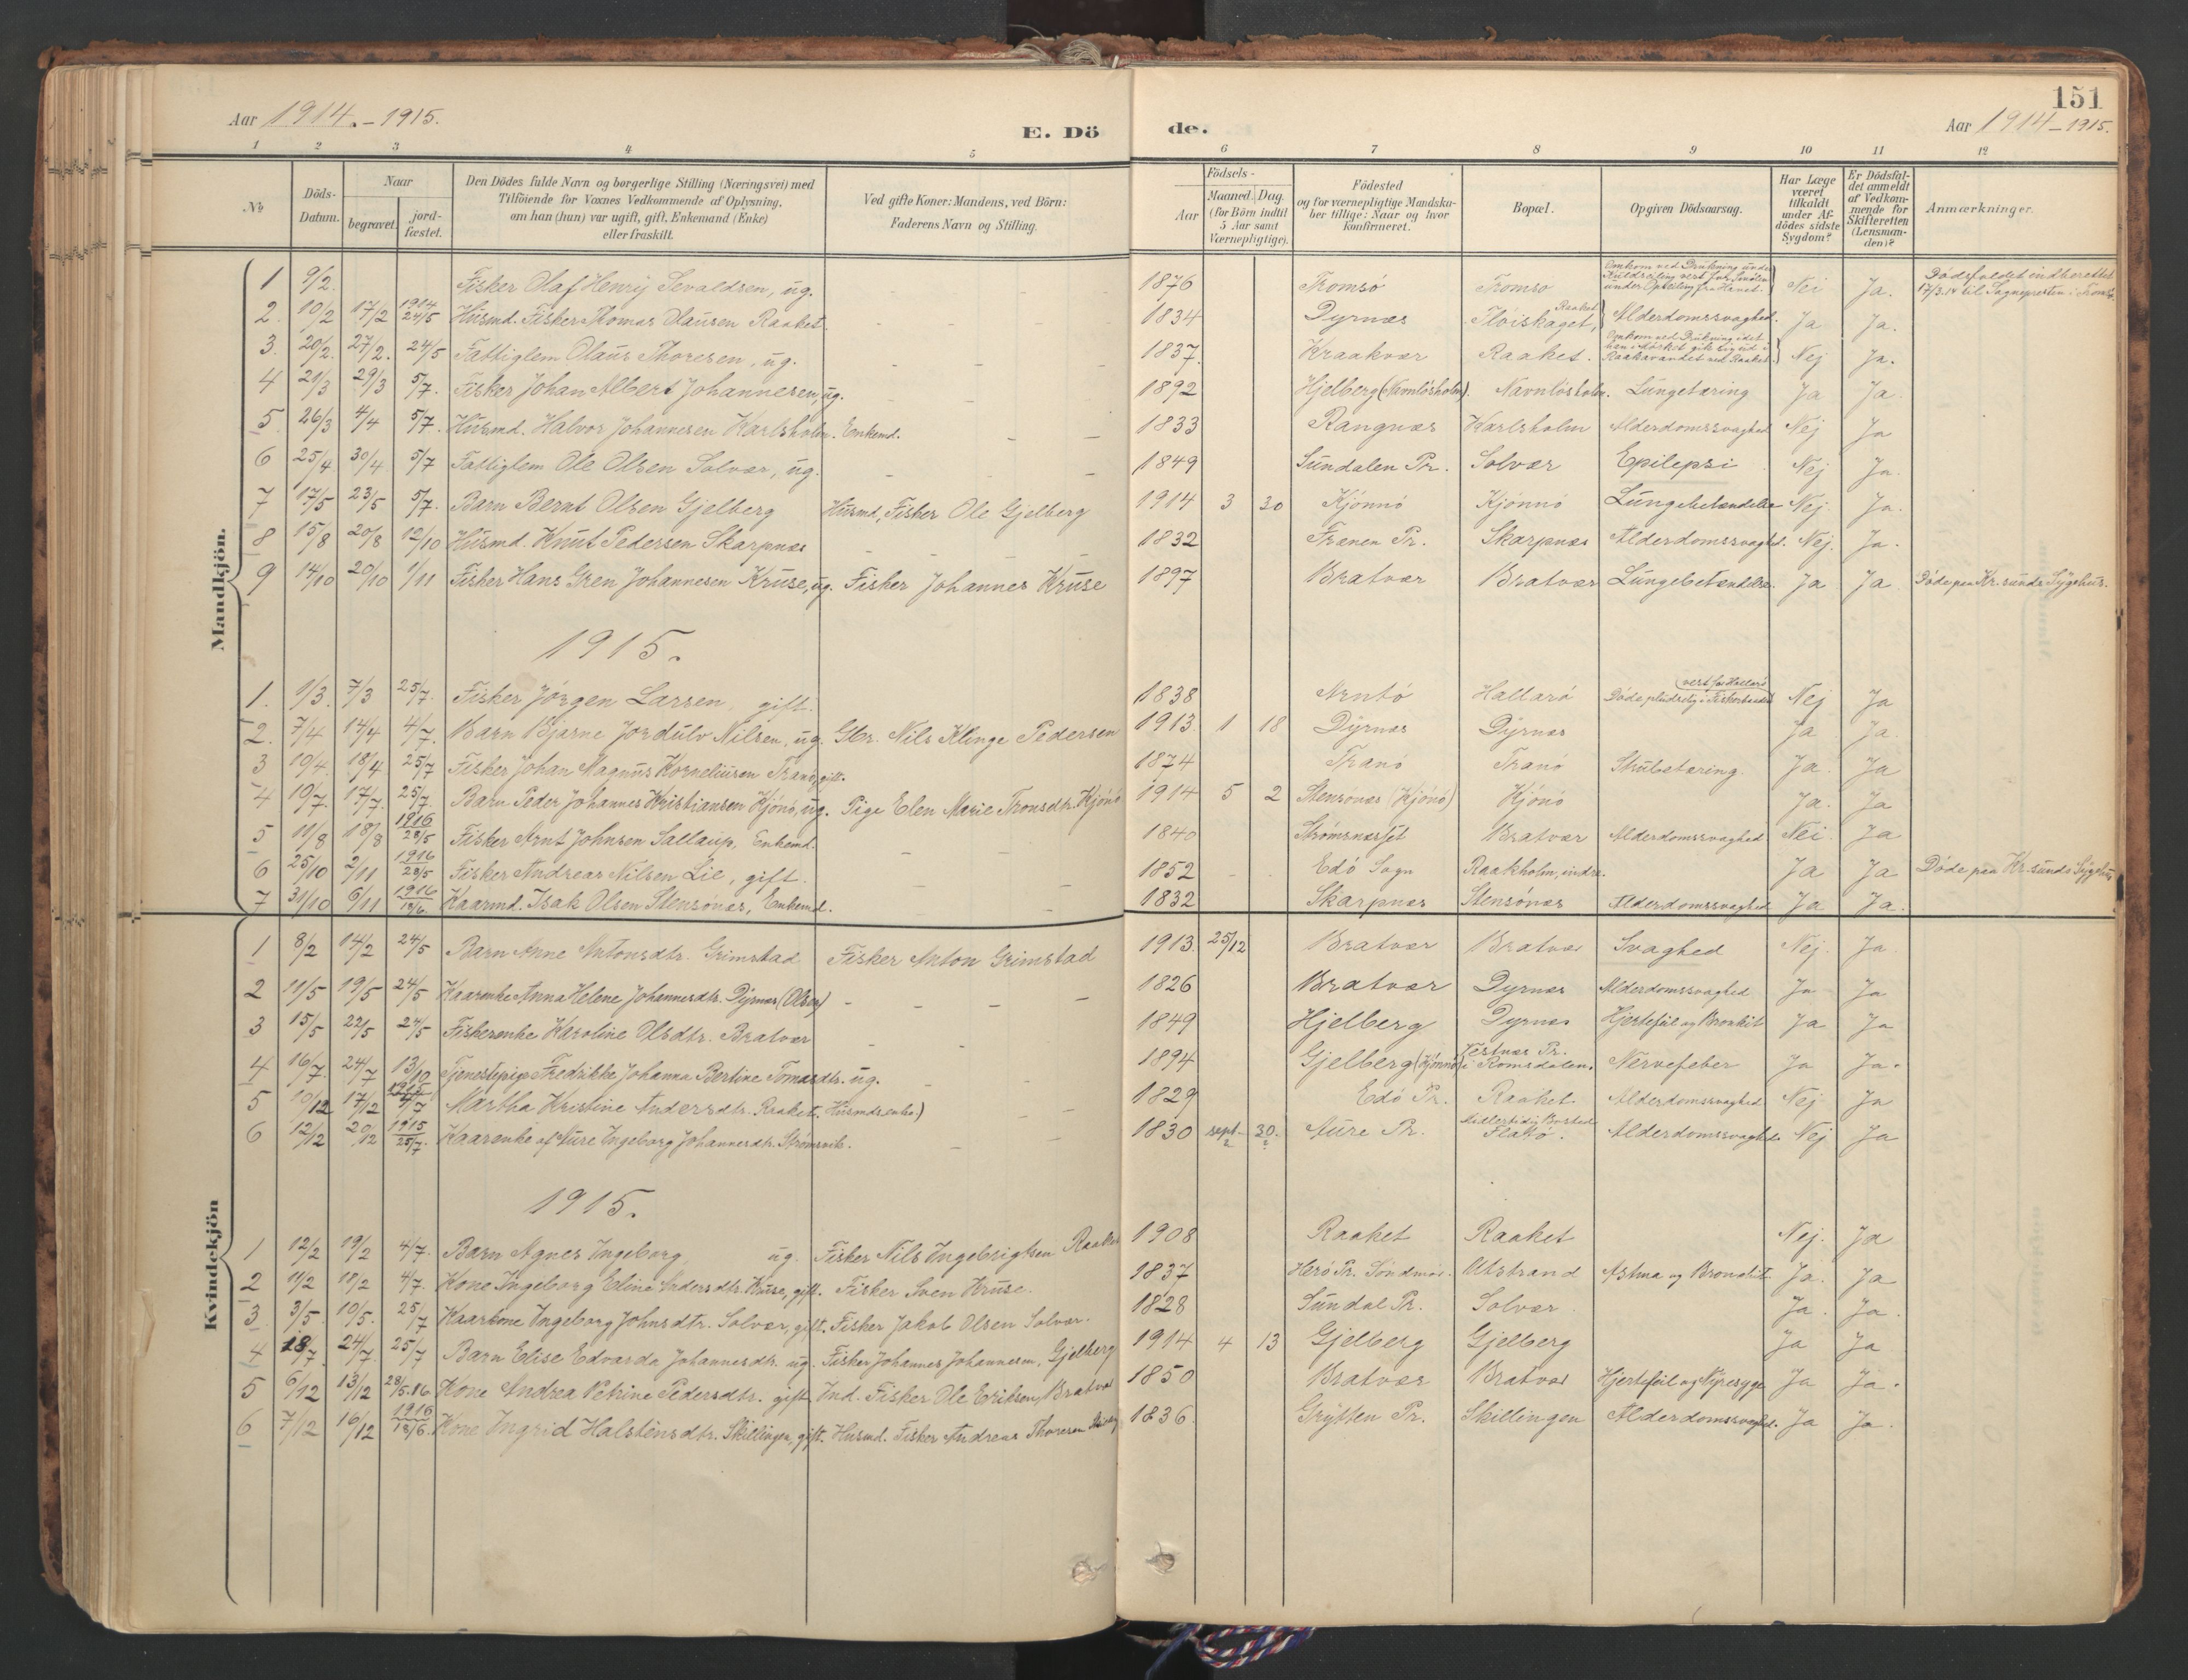 151
Aar 1914.-1915.
E. Dö
de.
Aar 1914-1915.
1 2 3 4 5 6 7 8 9 10 11 12
No
Döds-Datum.
Naar
begravet.
jord-fæstet.
Den Dödes fulde Navn og borgerlige Stilling (Næringsvei) med
Tilföiende for Voxnes Vedkommende af Oplysning,
om han (hun) var ugift, gift, Enkemand (Enke)
eller fraskilt.
Ved gifte Koner: Mandens, ved Börn:
Faderens Navn og Stilling.
Födsels-
Aar
Maaned. Dag.
(for Börn indtil
5 Aar samt
Værnepligtige).
Födested
og for værnepligtige Mandska-
ber tillige: Naar og hvor
konfirmeret.
Bopæl.
Opgiven Dödsaarsag.
Har Læge
været
tilkaldt
under Af-
dödes sidste
Sygdom?
Er Dödsfal-
det anmeldt
af Vedkom-
mende for
Skifteretten
(Lensman-
den)?
Anmærkninger.
Mandkjön.
1 9/2. Fisker Olaf Henry Sevaldsen, ug. - - 1876 Tromsö Tromsö Omkom ved Drukning under under Opseiling fra Havet. Nei Ja. Dödsfaldet indberettet 17/3.14 til Sogneprosten i Tromsö.
2. 10/2 17/2 1914 24/5 Husmd. Fisker Thomas Olausen Raaket. - - 1834 Dyrnæs Raaket Flöiskaget, Alderdomssvaghed. Ja Ja.
3. 20/2. 27/2. 24/5 Fattiglem Olaus Thoresen, ug. - - 1837. Kraakvær Raaket. Omkom ved Drukning idet han i Mörket gik sig ud i Raakavandet ved Raaket. Nej Ja.
4 21/3 29/3 5/7. Fisker Johan Albert Johannesen, ug. - - 1892 Hjelberg (Navnlösholm). Navnlösholm. Lungetæring Ja Ja.
5. 26/3 4/4 5/7. Husmd. Halvor Johannesen Karlsholm. Enkemd. - - 1833 Rangnæs Karlsholm Alderdomssvaghed Nej Ja
6 25/4 30/4 5/7 Fattiglem Ole Olsen Solvær, ug. - - 1849 Sundalen Pr. Solvær Epilepsi Nej Ja.
7 17/5 23/5 5/7. Barn Bernt Olsen Gjelberg Husmd, Fisker Ole Gjelberg 1914 3 30 Kjönnö Kjönnö Lungebetændelse Nej. Ja.
8 15/8 20/8 12/10 Husmd. Knut Pedersen Skarpnæs - - 1832 Frænen Pr. Skarpnæs Alderdomssvaghed. Nej. Ja.
9 14/10 20/10 1/11 Fisker Hans Gren Johannesen Kruse, ug. Fisker Johannes Kruse 1897 Bratvær Bratvær Lungebetændelse. Ja Ja Döde paa Kr.sunds Sygehus.
1915.
1. 1/3. 7/3 25/7. Fisker Jörgen Larsen, gift. 1838 Arntö Hallarö Döde pludselig i Fiskerbaaden (vest for Hallarö Nej Ja
2. 7/4 14/4 4/7. Barn Bjarne Jordulv Nilsen, ug. Gbr. Nils Klinge Pedersen 1913. 1 18 Dyrnæs Dyrnæs Ja Ja.
3 10/4. 18/4 25/7 Fisker Johan Magnus Korneliusen Tranö, gift. 1874 Tranö Tranö Strubetæring. Ja. Ja
4 10/7. 17/7. 25/7. Barn Peder Johannes Kristiansen Kjönö, ug. Pige Elen Marie Tronsdtr. Kjönö 1914 5 2 Stensönæs (Kjönö) Kjönö Ja. Ja
5 11/8 18/8 1916 28/5 Fisker Arnt Johnsen Sallaup, Enkemd. - - 1840 Strömsnæsset Bratvær Alderdomssvaghed Nei Ja
6 25/10 2/11 1916 28/5 Fisker Andreas Nilsen Lie, gift. - - 1852 - - Edö Sogn Raakholm, indre. Ja Ja Döde paa Kr.sunds Sygehus
7 31/10 6/11 1916 18/6. Kaarmd. Isak Olsen Stensönæs, Enkemd. - 1832 Skarpnæs Stensönæs Alderdomssvaghed Ja Ja.
Kvindekjön
1 8/2 14/2 24/5 Barn Anne Antonsdtr. Grimstad Fisker Anton Grimstad 1913. 25/12 Bratvær Bratvær Svaghed Nej. Ja
2 11/5 19/5 24/5 Kaarenke Anna Helene Johannesdtr. Dyrnæs (Olsen) - - - 1826 Bratvær Dyrnæs Alderdomssvaghed Ja Ja
3 15/5 22/5 24/5 Fiskerenke Karoline Olsdtr. Bratvær - - 1849 Hjelberg Dyrnæs Hjertefeil og Bronkit Ja Ja
4 16/7. 24/7 13/10 Tjenestepige Fredrikke Johanna Bertine Tomasdtr. ug. - - 1894 Gjelberg (Kjönnö) Vestnæs Pr. i Romsdalen. Nervefeber Ja Ja.
5 10/12 17/12 1915 4/7 Martha Kristine Andersdtr. Raaket. Husmdsenke.) - - 1829 Edö Pr. Raaket. Alderdomssvaghed Nej Ja
6 12/12 20/12 1915 25/7. Kaarenke af Aure Ingeborg Johannesdtr. Strömsvik. - - 1830 sept- 30. Aure Pr. Midlertidig Bosted Flatö. Alderdomssvaghed. Nej Ja
1915.
1 12/2 19/2 4/7. Barn Agnes Ingeborg ug. Fisker Nils Ingebrigtsen Raaket 1908 Raaket Raaket Nej. Ja
2 11/2 18/2 4/7. Kone Ingeborg Eline Andersdtr. Kruse, gift. Fisker Sven Kruse. 1837 Herö Pr. Söndmör. Utstrand Astma og Bronchit. Ja. Ja
3. 3/5. 10/5. 25/7 Kaarkone Ingeborg Johnsdtr. Solvær, gift. Fisker Jakob Olsen Solvær. 1828 Sundal Pr. Solvær. Ja. Ja.
4 18/7 24/7. 25/7 Barn Elise Edvarda Johannesdtr. ug. Fisker Johannes Johannesen, Gjelberg 1914 4 13 Gjelberg Gjelberg Ja Ja
5 6/12 13/12 28/5.16. Kone Andrea Petrine Pedersdtr. gift Ind. Fisker Ole Eriksen, Bratvær 1850 Bratvær Bratvær Hjertefeil og Nyresyge Ja Ja.
6 7/12 16/12 1916 18/6. Kone Ingrid Halstensdtr. Skillingen, gift. Husmd. Fisker Andreas Thoresen 1836. Grytten Pr. Skillingen Alderdomssvaghed. Ja Ja.